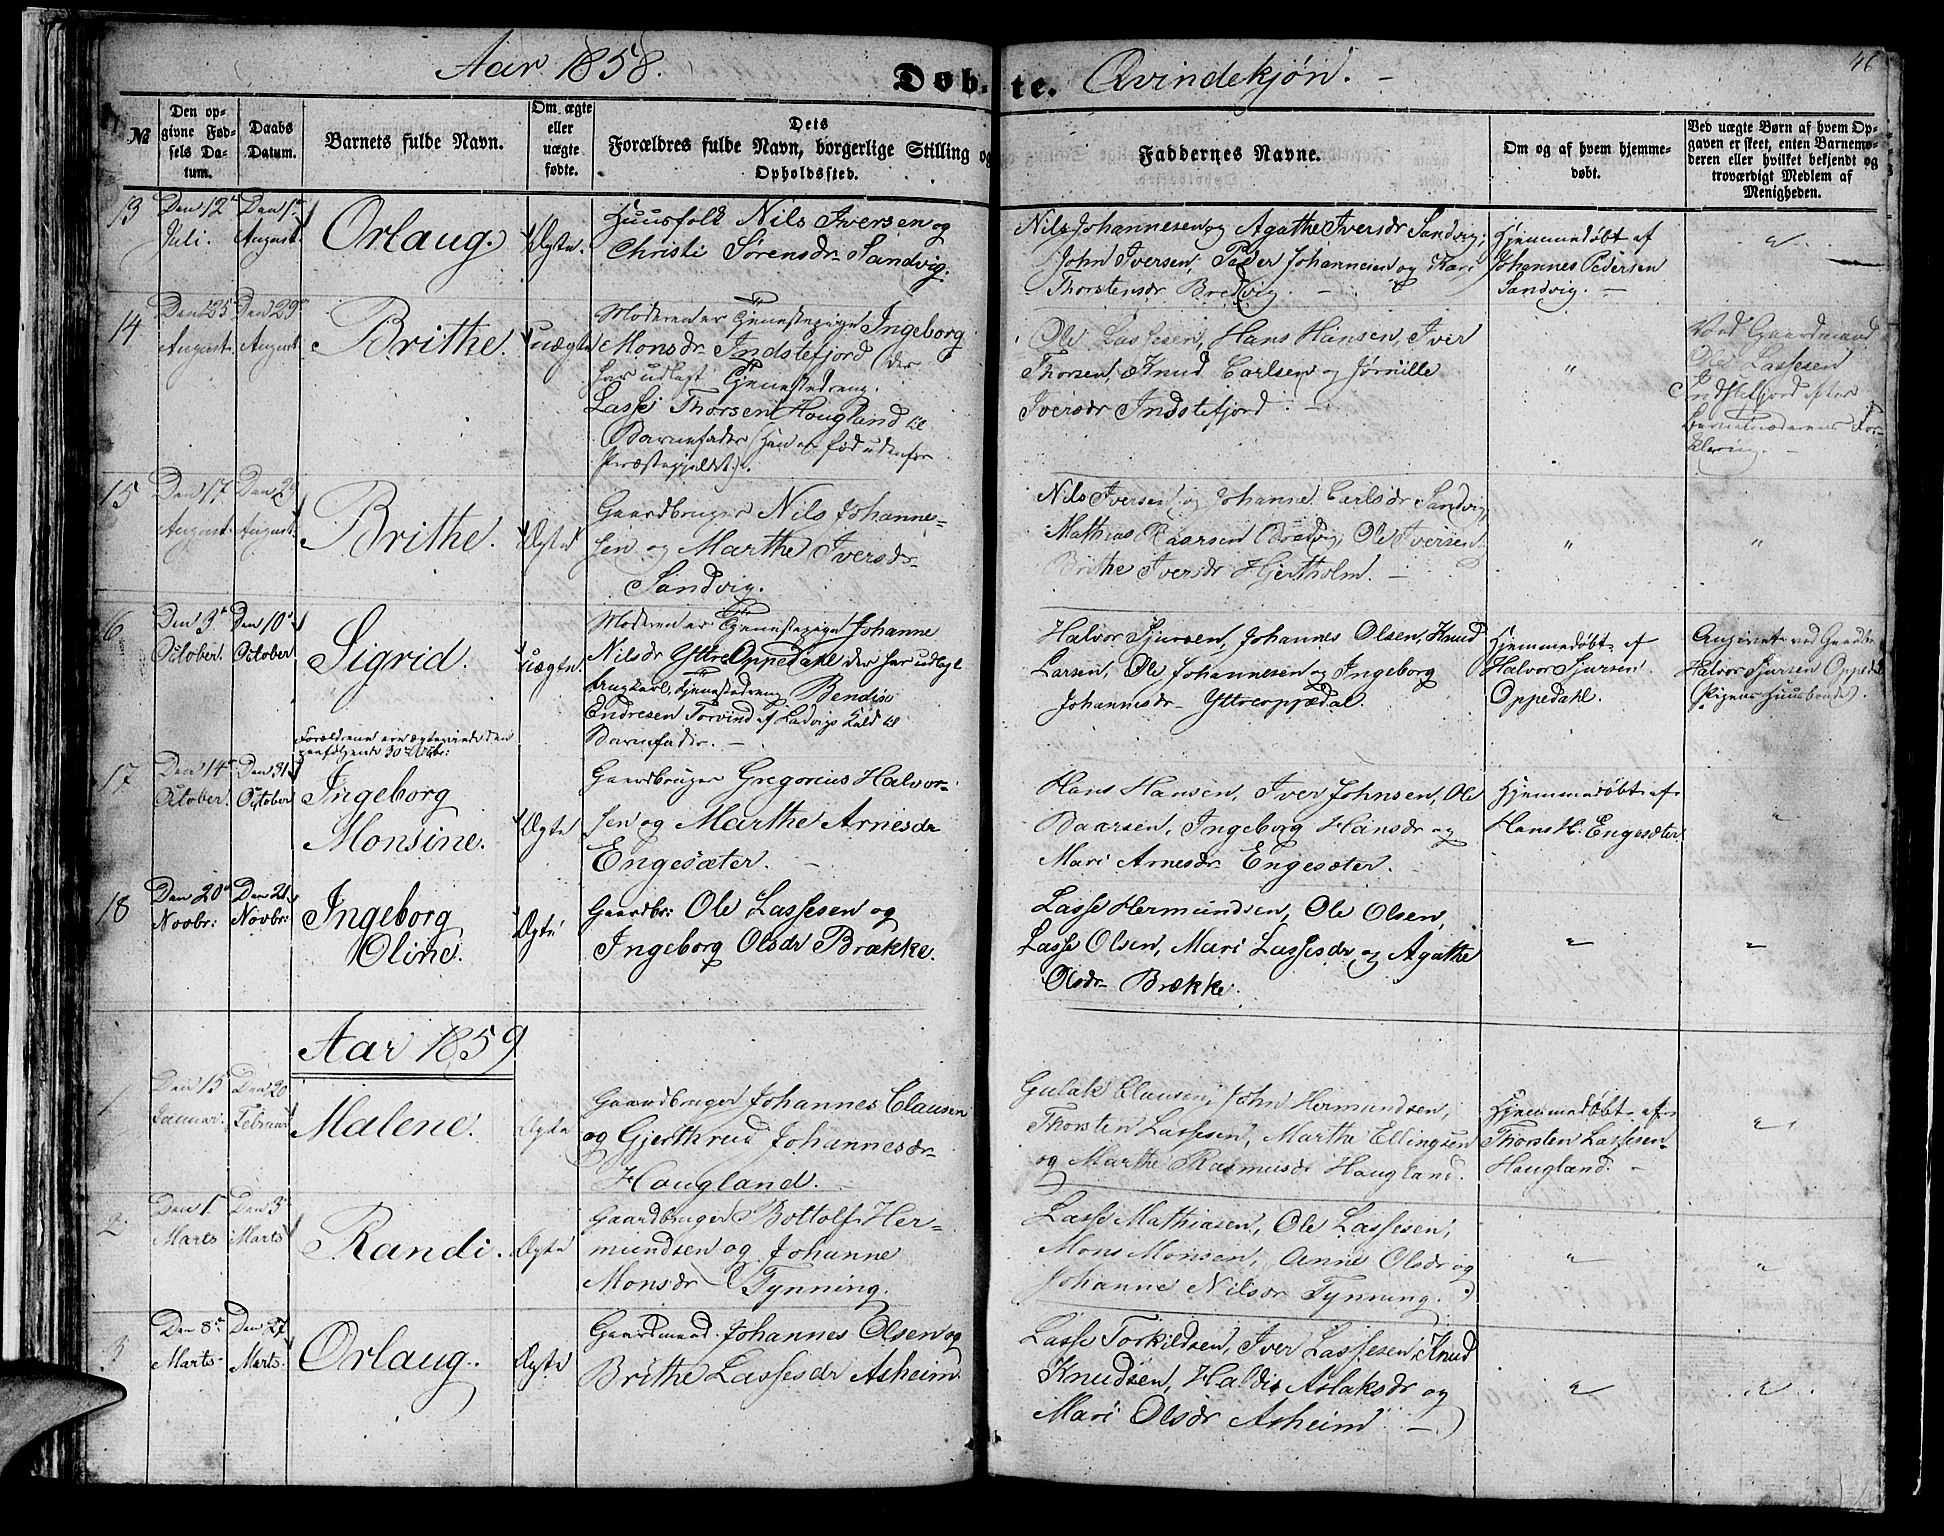 Aar 1858.
Døbte.
Qvindekjøn.
46
№
Den opgivne Fødsels Datum.
Daabs Datum.
Barnets fulde Navn.
Om ægte eller uægte fødte.
Dets Forældres fulde Navn, borgerlige Stilling og Opholdssted.
Faddernes Navne.
Om og af hvem hjemmedøbt.
Ved uægte Børn af hvem Opgaven er skeet, enten Barnemoderen eller hvilket bekjendt og troværdigt Medlem af Menigheden.
13
Den 12te Juli.
Den 1te August.
Orlaug.
Ægte.
Huusfolk Nils Iversen og
Christi Sørensdr Sandvig.
Nils Johannesen og Agathe Iversdr Sandvig,
John Iversen, Peder Johannesen og Kari
Thorstensdr Bredvig.
Hjemmedøbt af
Johannes Pedersen
Sandvig.
"
14
Den 25 August.
Den 29de August
Brithe.
uægte
Moderen er Tjenestepige Ingeborg
Monsdr Indstefjord der
har udlagt Tjenestedreng
Lasse Thorsen Hougland til
Barnefader (Han er fød udenfor
Præstegjeldet).
Ole Lassesen, Hans Hansen, Iver
Thorsen, Knud Carlsen og Jørnille
Iversdr Indstefjord.
"
Ved Gaardmand
Ole Lassesen
Indstefjord efter
Barnemoderens For-
klaring.
15
Den 17 August.
Den August.
Brithe.
Ægte
Gaardbruger Nils Johanne-
sen og Marthe Iversdr
Sandvig.
Nils Iversen og Johanne Carlsdr Sandvig,
Mathias Baarsen Bredvig, Ole Iversen
Brithe Iversdr Hjertholm.
"
"
16
Den 3de October.
Den 10de October
Sigrid.
uægte
Moderen er Tjenestepige Johanne
Nilsdr Yttre Oppedahl der har udlagt
Ungkarl, Tjenestedreng Bendix
Endresen Torvind af Ladvigs Kald til
Barnefader.
Halvor Sjursen, Johannes Olsen, Knud
Larsen, Ole Johannesen og Ingeborg
Johannesdr Yttreoppedal.
Hjemmedøbt af
Halvor Sjursen
Oppedahl.
Angivet ved Gaardbr
Halvor Sjursen Oppedal
(Pigens Huusbonde).
Forældrene ere ægteviede den
paafølgende 30te Octbr:
17
Den 14de October.
Den 31te October
Ingeborg
Monsine.
Ægte
Gaardbruger Gregorius Halvor-
sen og Marthe Arnesdr
Engesæter.
Hans Hansen, Iver Johnsen, Ole
Baarsen, Ingeborg Hansdr og
Mari Arnesdr Engesæter.
Hjemmedøbt af
Hans H: Engesæter.
"
18
Den 20de Novbr:
Den 21. Novbr:
Ingeborg
Oline.
Ægte
Gaardbr: Ole Lassesen og
Ingeborg Olsdr Brække.
Lasse Hermundsen, Ole Olsen,
Lasse Olsen, Mari Lassesdr og Agathe
Olsdr Brække.
"
"
Aar 1859
1
Den 15 Januar.
Den 20 Februar
Malene.
Ægte
Gaardbruger Johannes Clausen
og Gjerthrud Johannesdr
Hougland.
Gulak Clausen, John Hermundsen,
Thorsten Lassesen, Marthe Ellingsdr
og Marthe Rasmusdr Haugland.
Hjemmedøbt af
Thorsten Lassesen
Haugland.
"
2.
Den 1. Marts
Den 3de Marts
Randi.
Ægte
Gaardbruger Bottolf Her-
mundsen og Johanne
Monsdr Tynning.
Lasse Mathiasen, Ole Lassesen,
Mons Monsen, Anne Olsdr og
Johanne Nilsdr Tynning.
"
"
3
Den 8de Marts.
Den 27. Marts.
Orlaug.
Ægte
Gaardmand Johannes Olsen og
Brithe Lassesdr Asheim
Lasse Torkildsen, Iver Lassesen, Knud
Knudsen, Haldis Aslaksdr og
Mari Olsdr Asheim
"
"